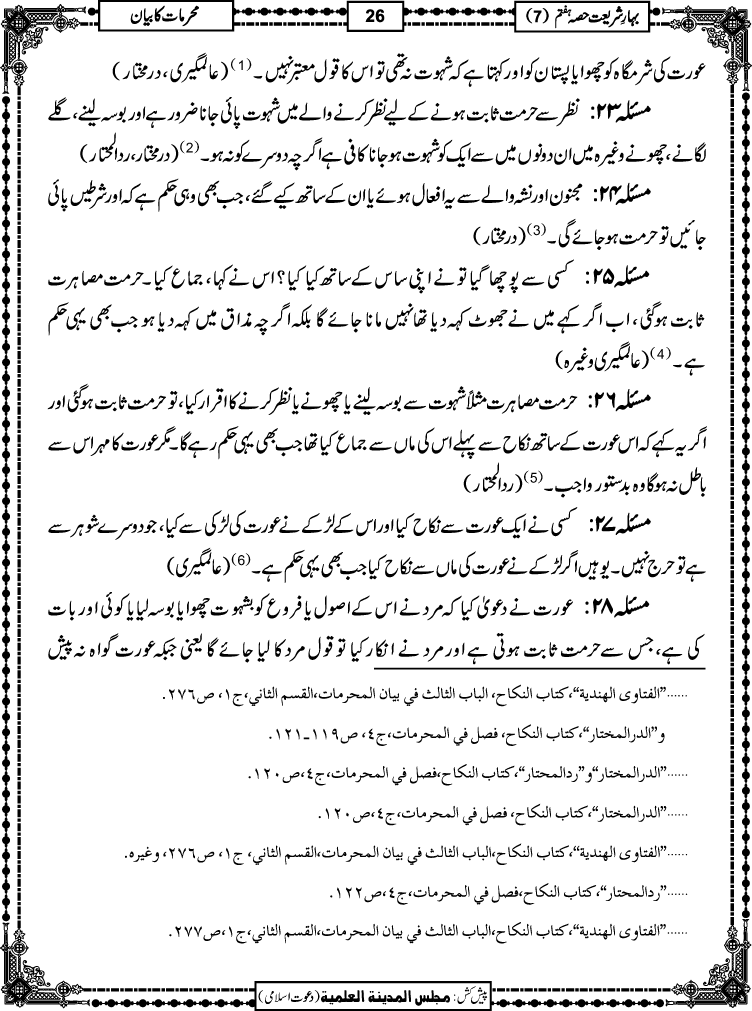 بہارِ شریعت حصہ ہفتم (7)
26
محرمات کا بیان
عورت کی شرمگاہ کو چھوا یا پستان کو اور کہتا ہے کہ شہوت نہ تھی تو اس کا قول معتبر نہیں۔(1) (عالمگیری، درمختار)
مسئلہ ۲۳: نظر سے حرمت ثابت ہونے کے لیے نظر کرنے والے میں شہوت پائی جانا ضرور ہے اور بوسہ لینے، گلے
لگانے، چھونے وغیرہ میں ان دونوں میں سے ایک کو شہوت ہو جانا کافی ہے اگرچہ دوسرے کو نہ ہو۔(2) (درمختار، ردالمحتار)
مسئلہ ۲۴: مجنون اور نشہ والے سے یہ افعال ہوئے یا ان کے ساتھ کیے گئے، جب بھی وہی حکم ہے کہ اور شرطیں پائی
جائیں تو حرمت ہو جائے گی۔(3) (درمختار)
مسئلہ ۲۵: کسی سے پوچھا گیا تو نے اپنی ساس کے ساتھ کیا کیا؟ اس نے کہا، جماع کیا۔ حرمت مصاہرت
ثابت ہوگئی، اب اگر کہے میں نے جھوٹ کہہ دیا تھا نہیں مانا جائے گا بلکہ اگرچہ مذاق میں کہہ دیا ہو جب بھی یہی حکم
ہے۔(4) (عالمگیری وغیرہ)
مسئلہ ۲۶: حرمت مصاہرت مثلاً شہوت سے بوسہ لینے یا چھونے یا نظر کرنے کا اقرار کیا، تو حرمت ثابت ہوگئی اور
اگر یہ کہے کہ اس عورت کے ساتھ نکاح سے پہلے اس کی ماں سے جماع کیا تھا جب بھی یہی حکم رہے گا۔ مگر عورت کا مہر اس سے
باطل نہ ہوگا وہ بدستور واجب۔(5) (ردالمحتار)
مسئلہ ۲۷: کسی نے ایک عورت سے نکاح کیا اور اس کے لڑکے نے عورت کی لڑکی سے کیا، جو دوسرے شوہر سے
ہے تو حرج نہیں۔ یوہیں اگر لڑکے نے عورت کی ماں سے نکاح کیا جب بھی یہی حکم ہے۔(6) (عالمگیری)
مسئلہ ۲۸: عورت نے دعویٰ کیا کہ مرد نے اس کے اصول یا فروع کو بشہوت چھوا یا بوسہ لیا یا کوئی اور بات
کی ہے، جس سے حرمت ثابت ہوتی ہے اور مرد نے انکار کیا تو قول مرد کا لیا جائے گا یعنی جبکہ عورت گواہ نہ پیش
......”الفتاوی الهندیة“، کتاب النکاح، الباب الثالث في بیان المحرمات، القسم الثاني، ج۱، ص۲۷۶.
و”الدرالمختار“، کتاب النکاح، فصل في المحرمات، ج٤، ص۱۱۹ـ۱۲۱.
......”الدرالمختار“ و”ردالمحتار“، کتاب النکاح، فصل في المحرمات، ج٤، ص۱۲۰.
......”الدرالمختار“، کتاب النکاح، فصل في المحرمات، ج٤، ص۱۲۰.
......”الفتاوی الهندیة“، کتاب النکاح، الباب الثالث في بیان المحرمات، القسم الثاني، ج۱، ص۲۷۶، وغیره.
......”ردالمحتار“، کتاب النکاح، فصل في المحرمات، ج٤، ص۱۲۲.
......”الفتاوی الهندیة“، کتاب النکاح، الباب الثالث في بیان المحرمات، القسم الثاني، ج۱، ص۲۷۷.
پیش کش: مجلس المدینة العلمیة (دعوتِ اسلامی)